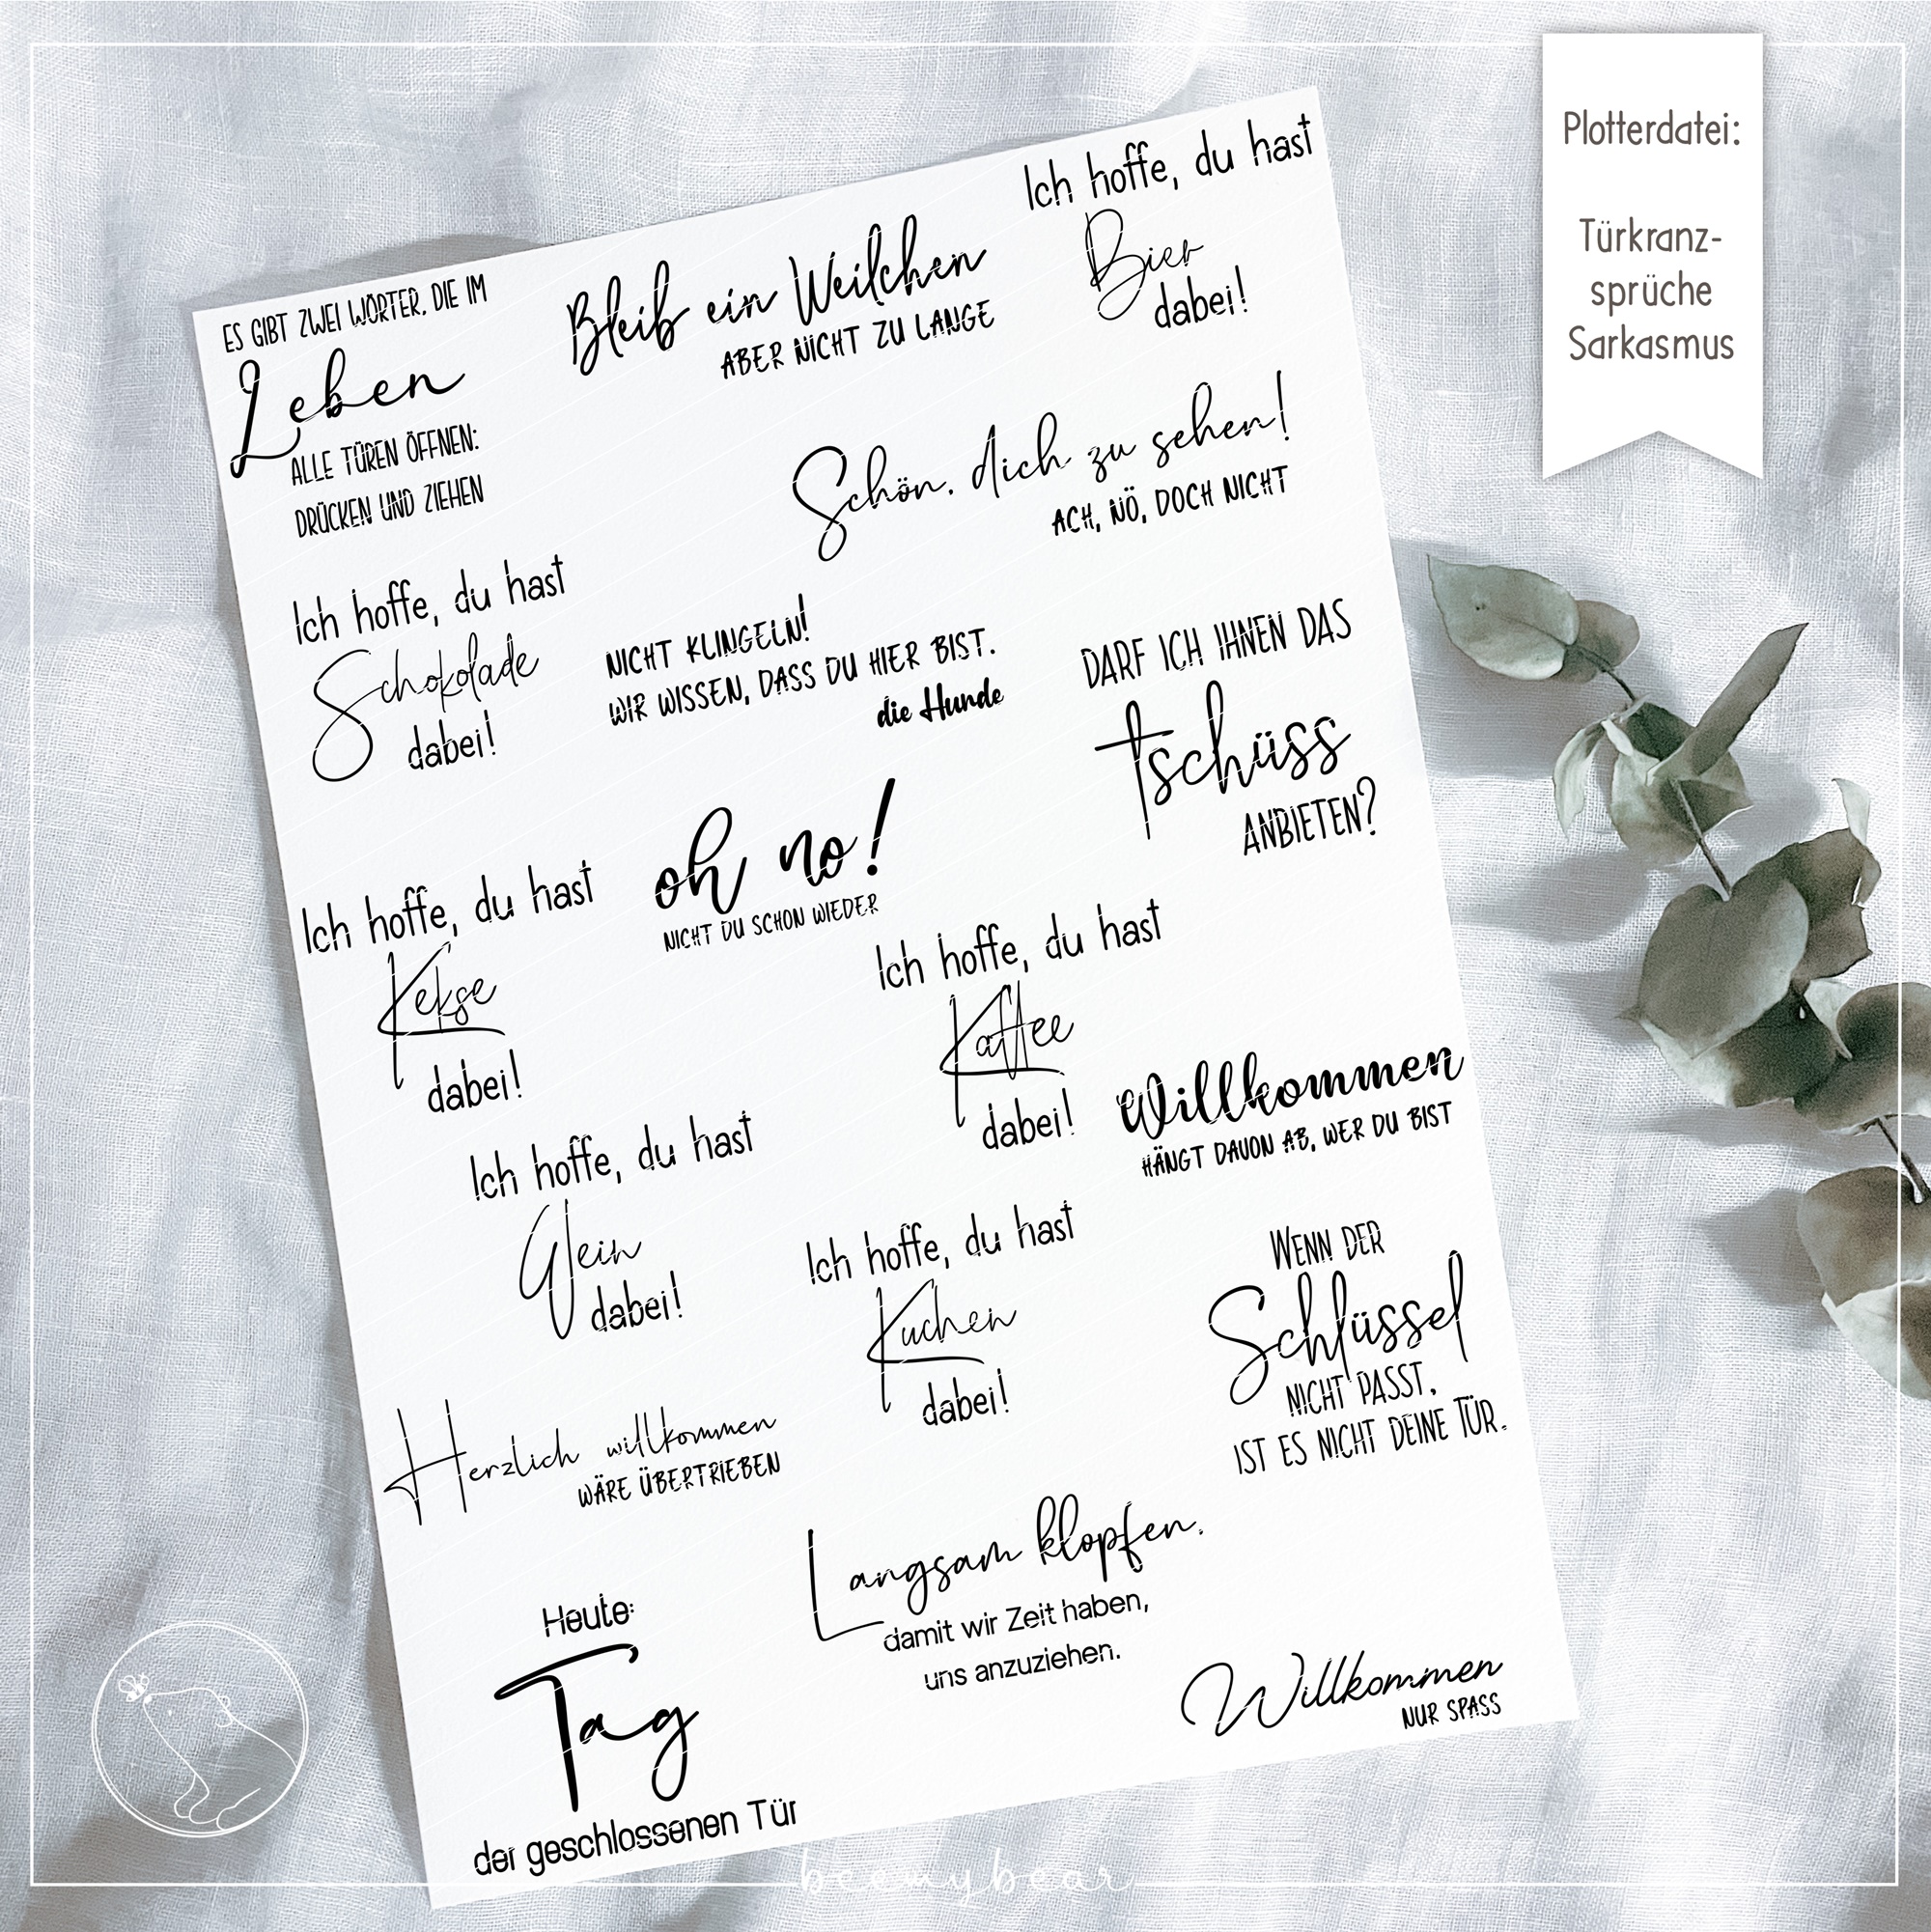 Plotterdatei:
Türkranz-
sprüche
Sarkasmus
ES GIBT ZWEI WÖRTER, DIE IM
Leben
ALLE TÜREN ÖFFNEN:
DRÜCKEN UND ZIEHEN
Bleib ein Weilchen
ABER NICHT ZU LANGE
Ich hoffe, du hast
Bier
dabei!
Schön, dich zu sehen!
ACH, NÖ, DOCH NICHT
Ich hoffe, du hast
Schokolade
dabei!
NICHT KLINGELN!
WIR WISSEN, DASS DU HIER BIST.
die Hunde
DARF ICH IHNEN DAS
tschüss
ANBIETEN?
Ich hoffe, du hast
Kekse
dabei!
oh no!
NICHT DU SCHON WIEDER
Ich hoffe, du hast
Kaffee
dabei!
Willkommen
HÄNGT DAVON AB, WER DU BIST
Ich hoffe, du hast
Wein
dabei!
Ich hoffe, du hast
Kuchen
dabei!
WENN DER
Schlüssel
NICHT PASST,
IST ES NICHT DEINE TÜR.
Herzlich willkommen
WÄRE ÜBERTRIEBEN
Langsam klopfen,
damit wir Zeit haben,
uns anzuziehen.
Heute:
Tag
der geschlossenen Tür
Willkommen
NUR SPASS
beemybear